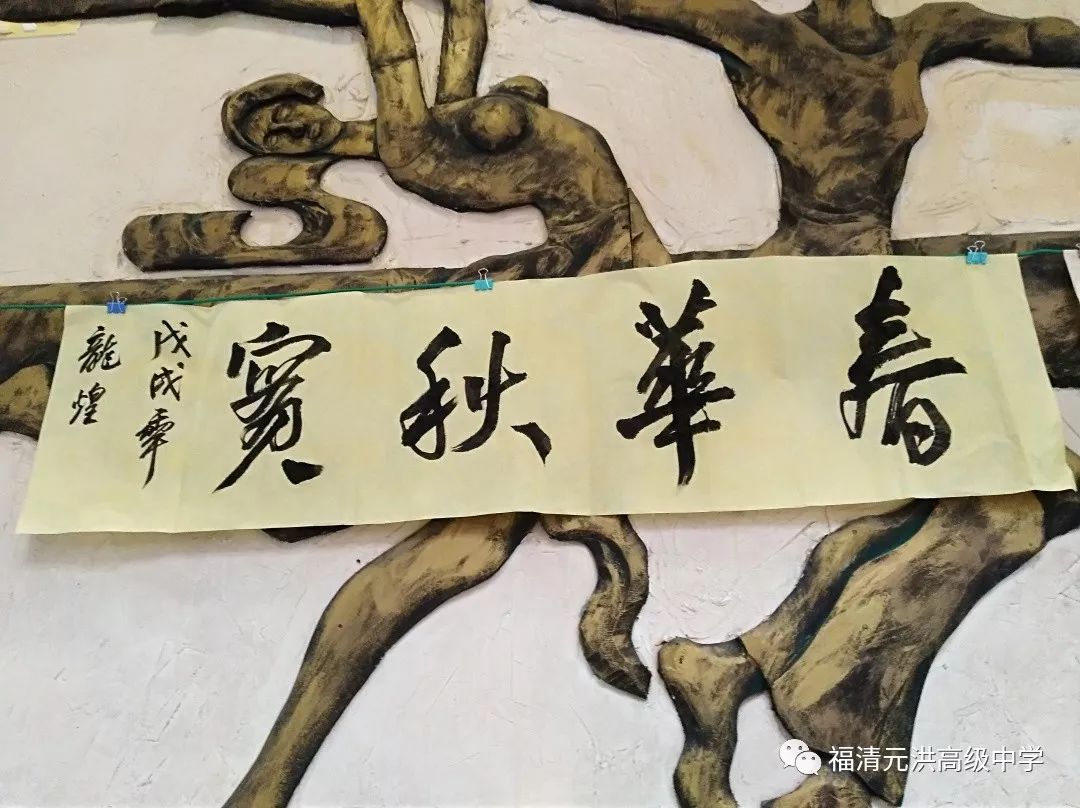 春華秋實
戊戌季
龍煌
福清元洪高级中学